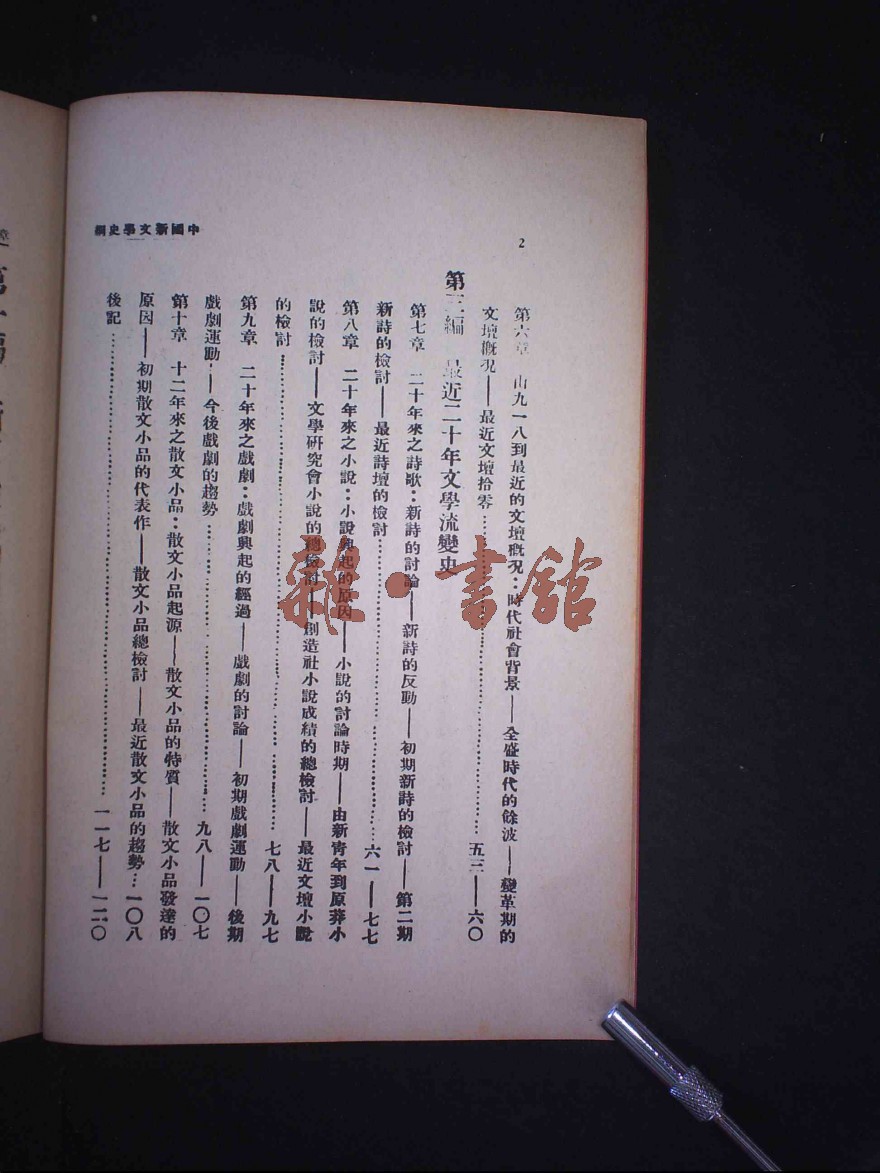 2
中國新文學史綱
第六章 由九一八到最近的文壇概況：時代社會背景——全盛時代的餘波——變革期的
文壇概況——最近文壇拾零…………五三——六〇
第三編 最近二十年文學流變史
第七章 二十年來之詩歌：新詩的討論——新詩的反動——初期新詩的檢討——第二期
新詩的檢討——最近詩壇的檢討…………六一——七七
第八章 二十年來之小說：小說興起的原因——小說的討論時期——由新青年到原莽小
說的檢討——文學研究會小說的總檢討——創造社小說成績的總檢討——最近文壇小說
的檢討…………七八——九七
第九章 二十年來之戲劇：戲劇興起的經過——戲劇的討論——初期戲劇運動——後期
戲劇運動——今後戲劇的趨勢…………九八——一〇七
第十章 十二年來之散文小品：散文小品起源——散文小品的特質——散文小品發達的
原因——初期散文小品的代表作——散文小品總檢討——最近散文小品的趨勢…一〇八
後記…………一一七——一二〇
雜·書館